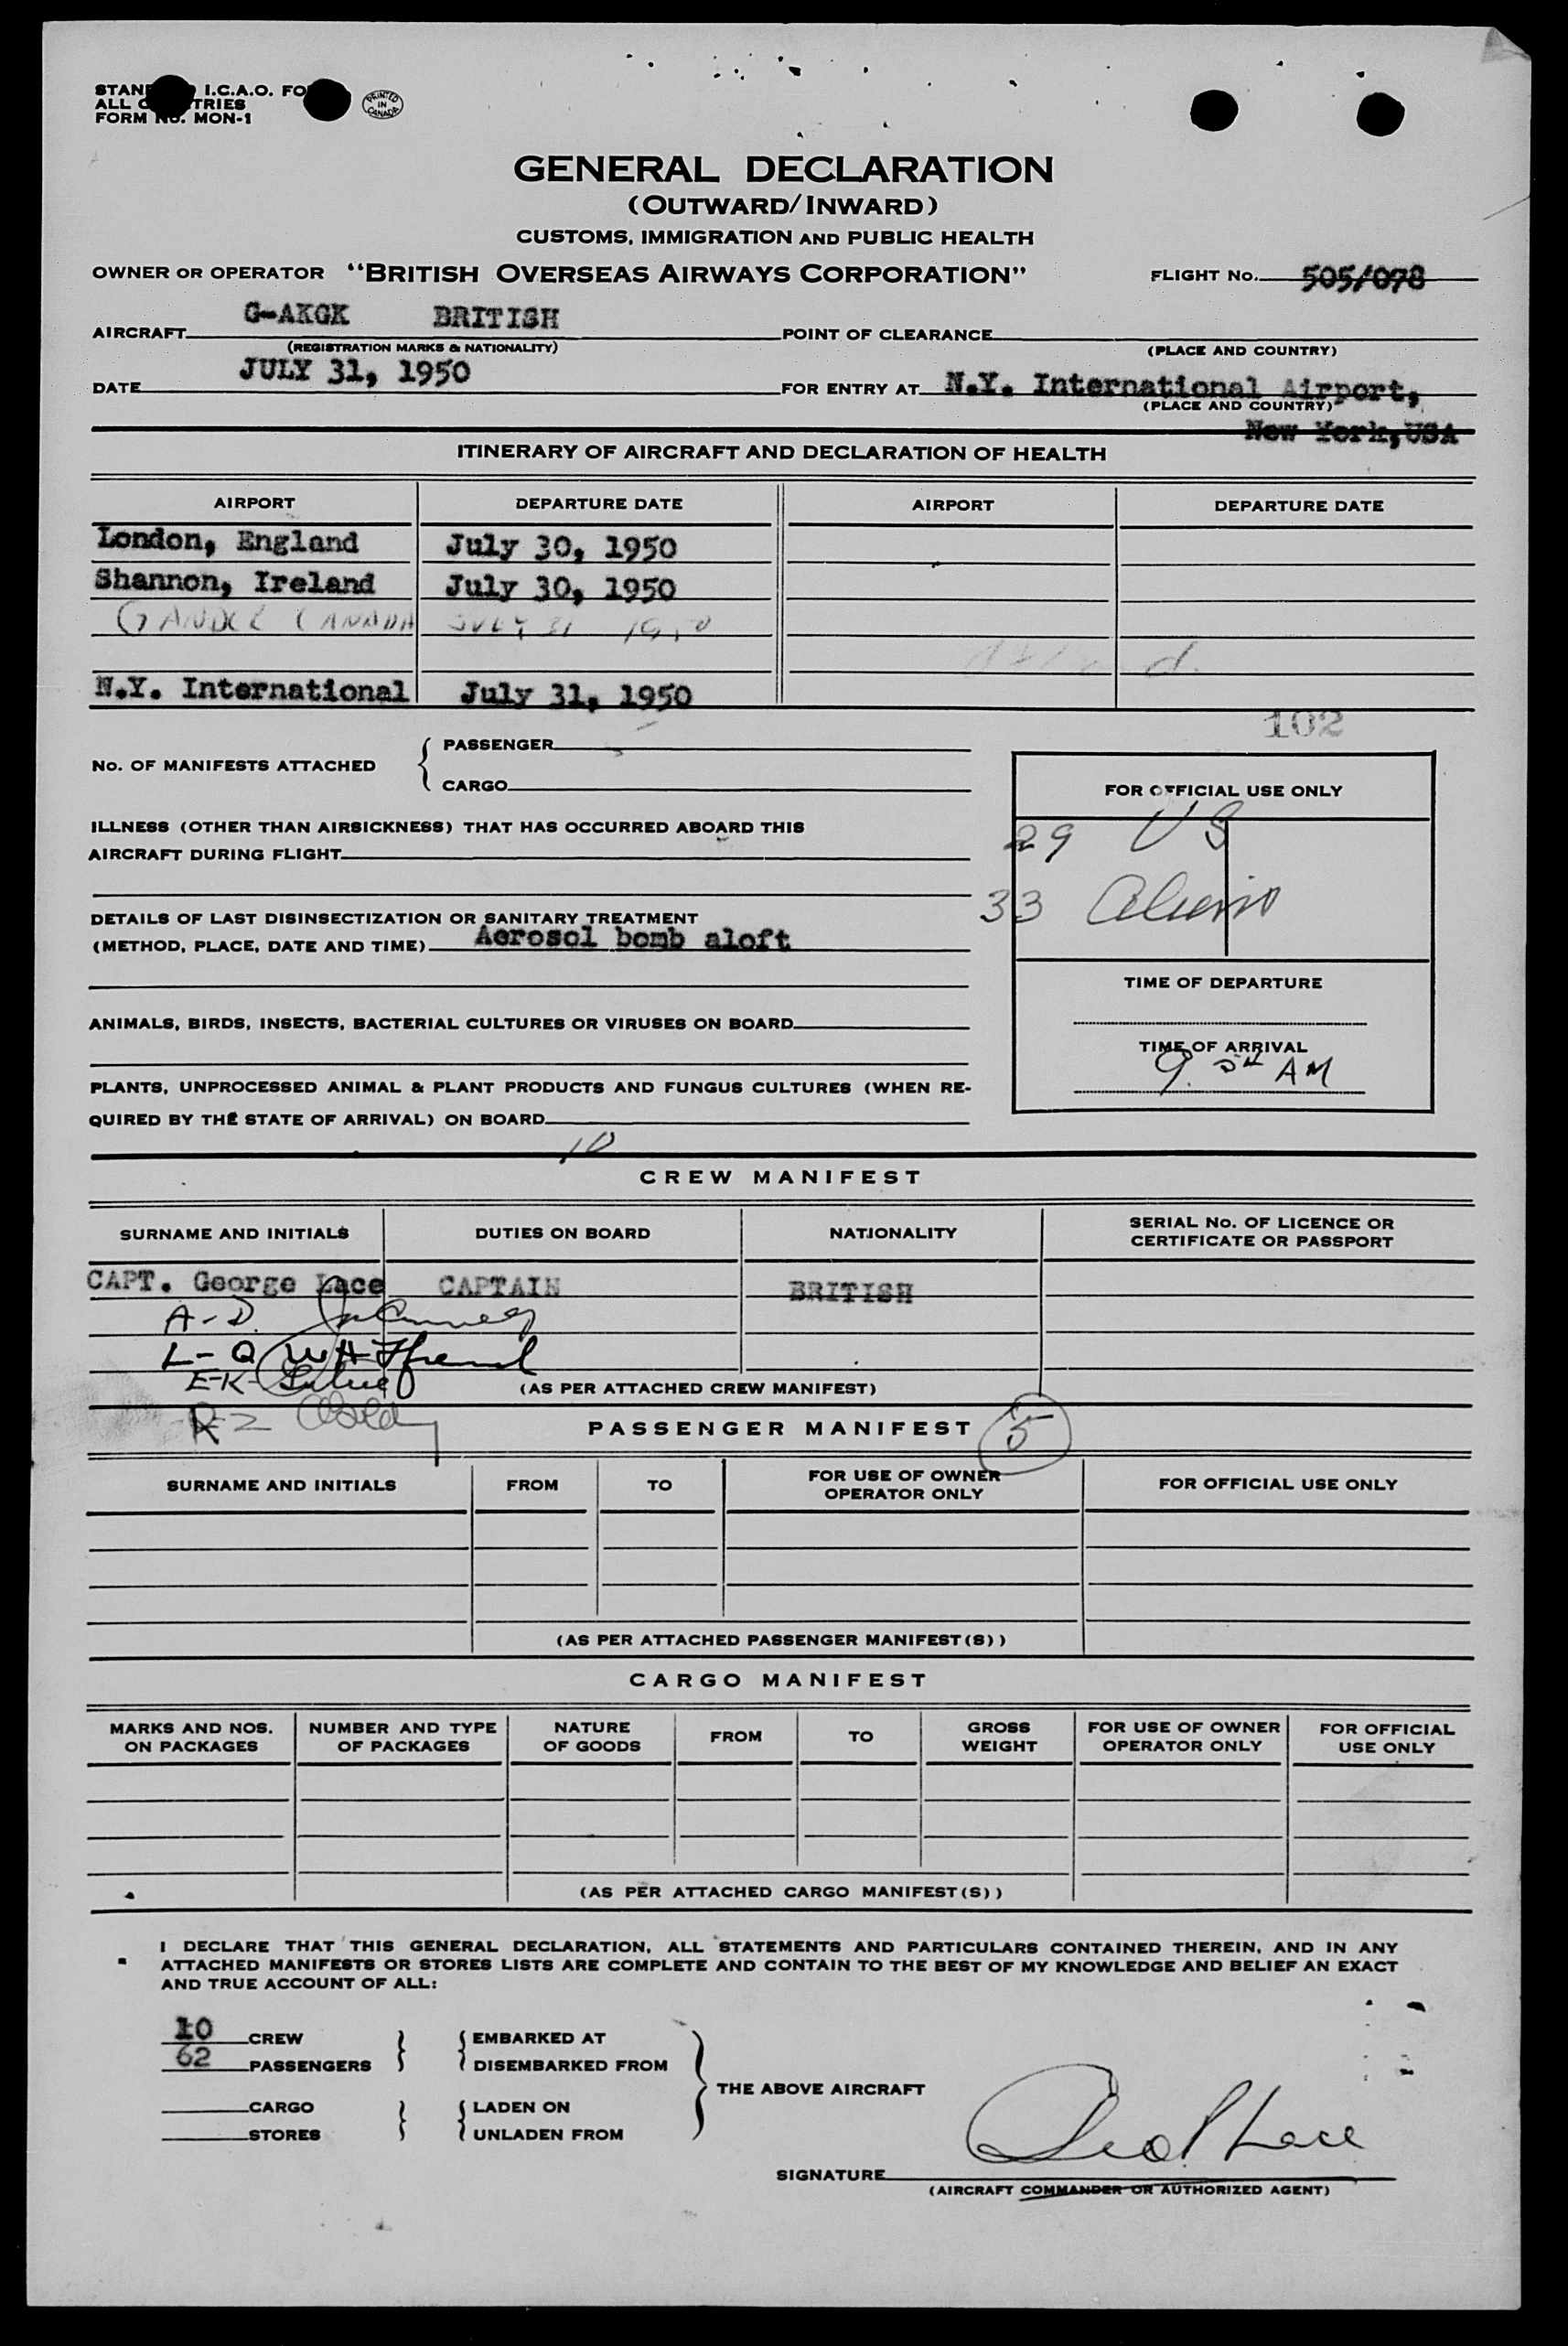 STAND I.C.A.O. FO
ALL C TRIES
FORM No. MON-1
PRINTED IN CANADA
GENERAL DECLARATION
(OUTWARD/INWARD)
CUSTOMS, IMMIGRATION AND PUBLIC HEALTH
OWNER OR OPERATOR "BRITISH OVERSEAS AIRWAYS CORPORATION" FLIGHT No. 505/078
AIRCRAFT G-AKGK BRITISH POINT OF CLEARANCE
(REGISTRATION MARKS & NATIONALITY) (PLACE AND COUNTRY)
DATE JULY 31, 1950 FOR ENTRY AT N.Y. International Airport,
(PLACE AND COUNTRY)
New York, USA
ITINERARY OF AIRCRAFT AND DECLARATION OF HEALTH
AIRPORT DEPARTURE DATE AIRPORT DEPARTURE DATE
London, England July 30, 1950
Shannon, Ireland July 30, 1950
GANDER CANADA JULY 31 1950
N.Y. International July 31, 1950
102
No. OF MANIFESTS ATTACHED { PASSENGER
CARGO
FOR OFFICIAL USE ONLY
29 US
33 Aliens
ILLNESS (OTHER THAN AIRSICKNESS) THAT HAS OCCURRED ABOARD THIS
AIRCRAFT DURING FLIGHT
DETAILS OF LAST DISINSECTIZATION OR SANITARY TREATMENT
(METHOD, PLACE, DATE AND TIME) Aerosol bomb aloft
TIME OF DEPARTURE
ANIMALS, BIRDS, INSECTS, BACTERIAL CULTURES OR VIRUSES ON BOARD
TIME OF ARRIVAL
AM
PLANTS, UNPROCESSED ANIMAL & PLANT PRODUCTS AND FUNGUS CULTURES (WHEN RE-
QUIRED BY THE STATE OF ARRIVAL) ON BOARD
10
CREW MANIFEST
SURNAME AND INITIALS DUTIES ON BOARD NATIONALITY SERIAL No. OF LICENCE OR
CERTIFICATE OR PASSPORT
CAPT. George Lace CAPTAIN BRITISH
A-D
L-Q
E-K
(AS PER ATTACHED CREW MANIFEST)
R-Z
PASSENGER MANIFEST 5
SURNAME AND INITIALS FROM TO FOR USE OF OWNER
OPERATOR ONLY FOR OFFICIAL USE ONLY
(AS PER ATTACHED PASSENGER MANIFEST(S))
CARGO MANIFEST
MARKS AND NOS.
ON PACKAGES NUMBER AND TYPE
OF PACKAGES NATURE
OF GOODS FROM TO GROSS
WEIGHT FOR USE OF OWNER
OPERATOR ONLY FOR OFFICIAL
USE ONLY
(AS PER ATTACHED CARGO MANIFEST(S))
I DECLARE THAT THIS GENERAL DECLARATION, ALL STATEMENTS AND PARTICULARS CONTAINED THEREIN, AND IN ANY
ATTACHED MANIFESTS OR STORES LISTS ARE COMPLETE AND CONTAIN TO THE BEST OF MY KNOWLEDGE AND BELIEF AN EXACT
AND TRUE ACCOUNT OF ALL:
10 CREW } { EMBARKED AT
62 PASSENGERS } { DISEMBARKED FROM
THE ABOVE AIRCRAFT
CARGO } { LADEN ON
STORES } { UNLADEN FROM
SIGNATURE Geo P Lace
(AIRCRAFT COMMANDER OR AUTHORIZED AGENT)